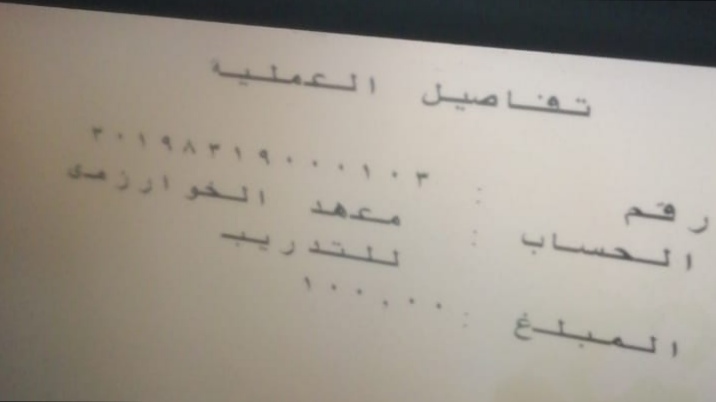 تفاصيل العملية
رقم : ٣٠١٩٨٣١٩٠٠٠١٠٣
الحساب : معهد الخوارزمى
للتدريب
المبلغ : ١٠٠,٠٠